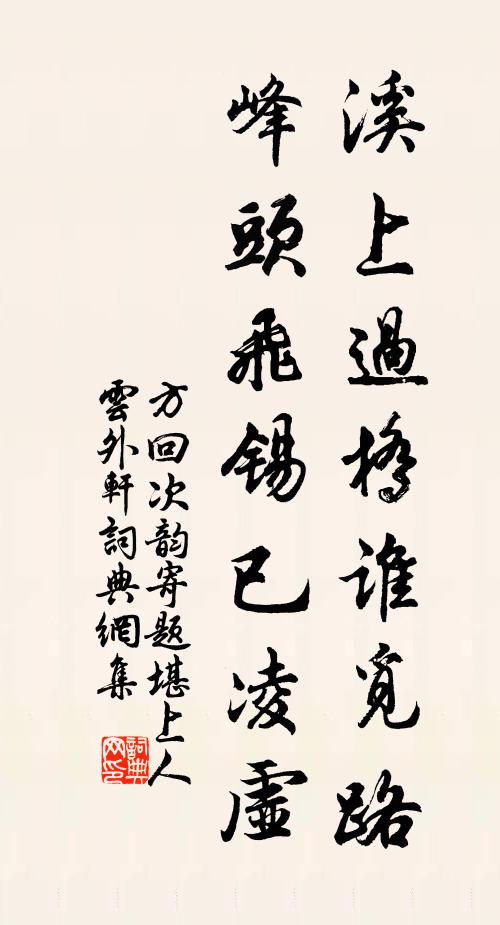 溪上過橋誰覓路
峰頭飛錫已凌虛
方回次韵寄題堪上人
雲外軒詞典網集
詞典